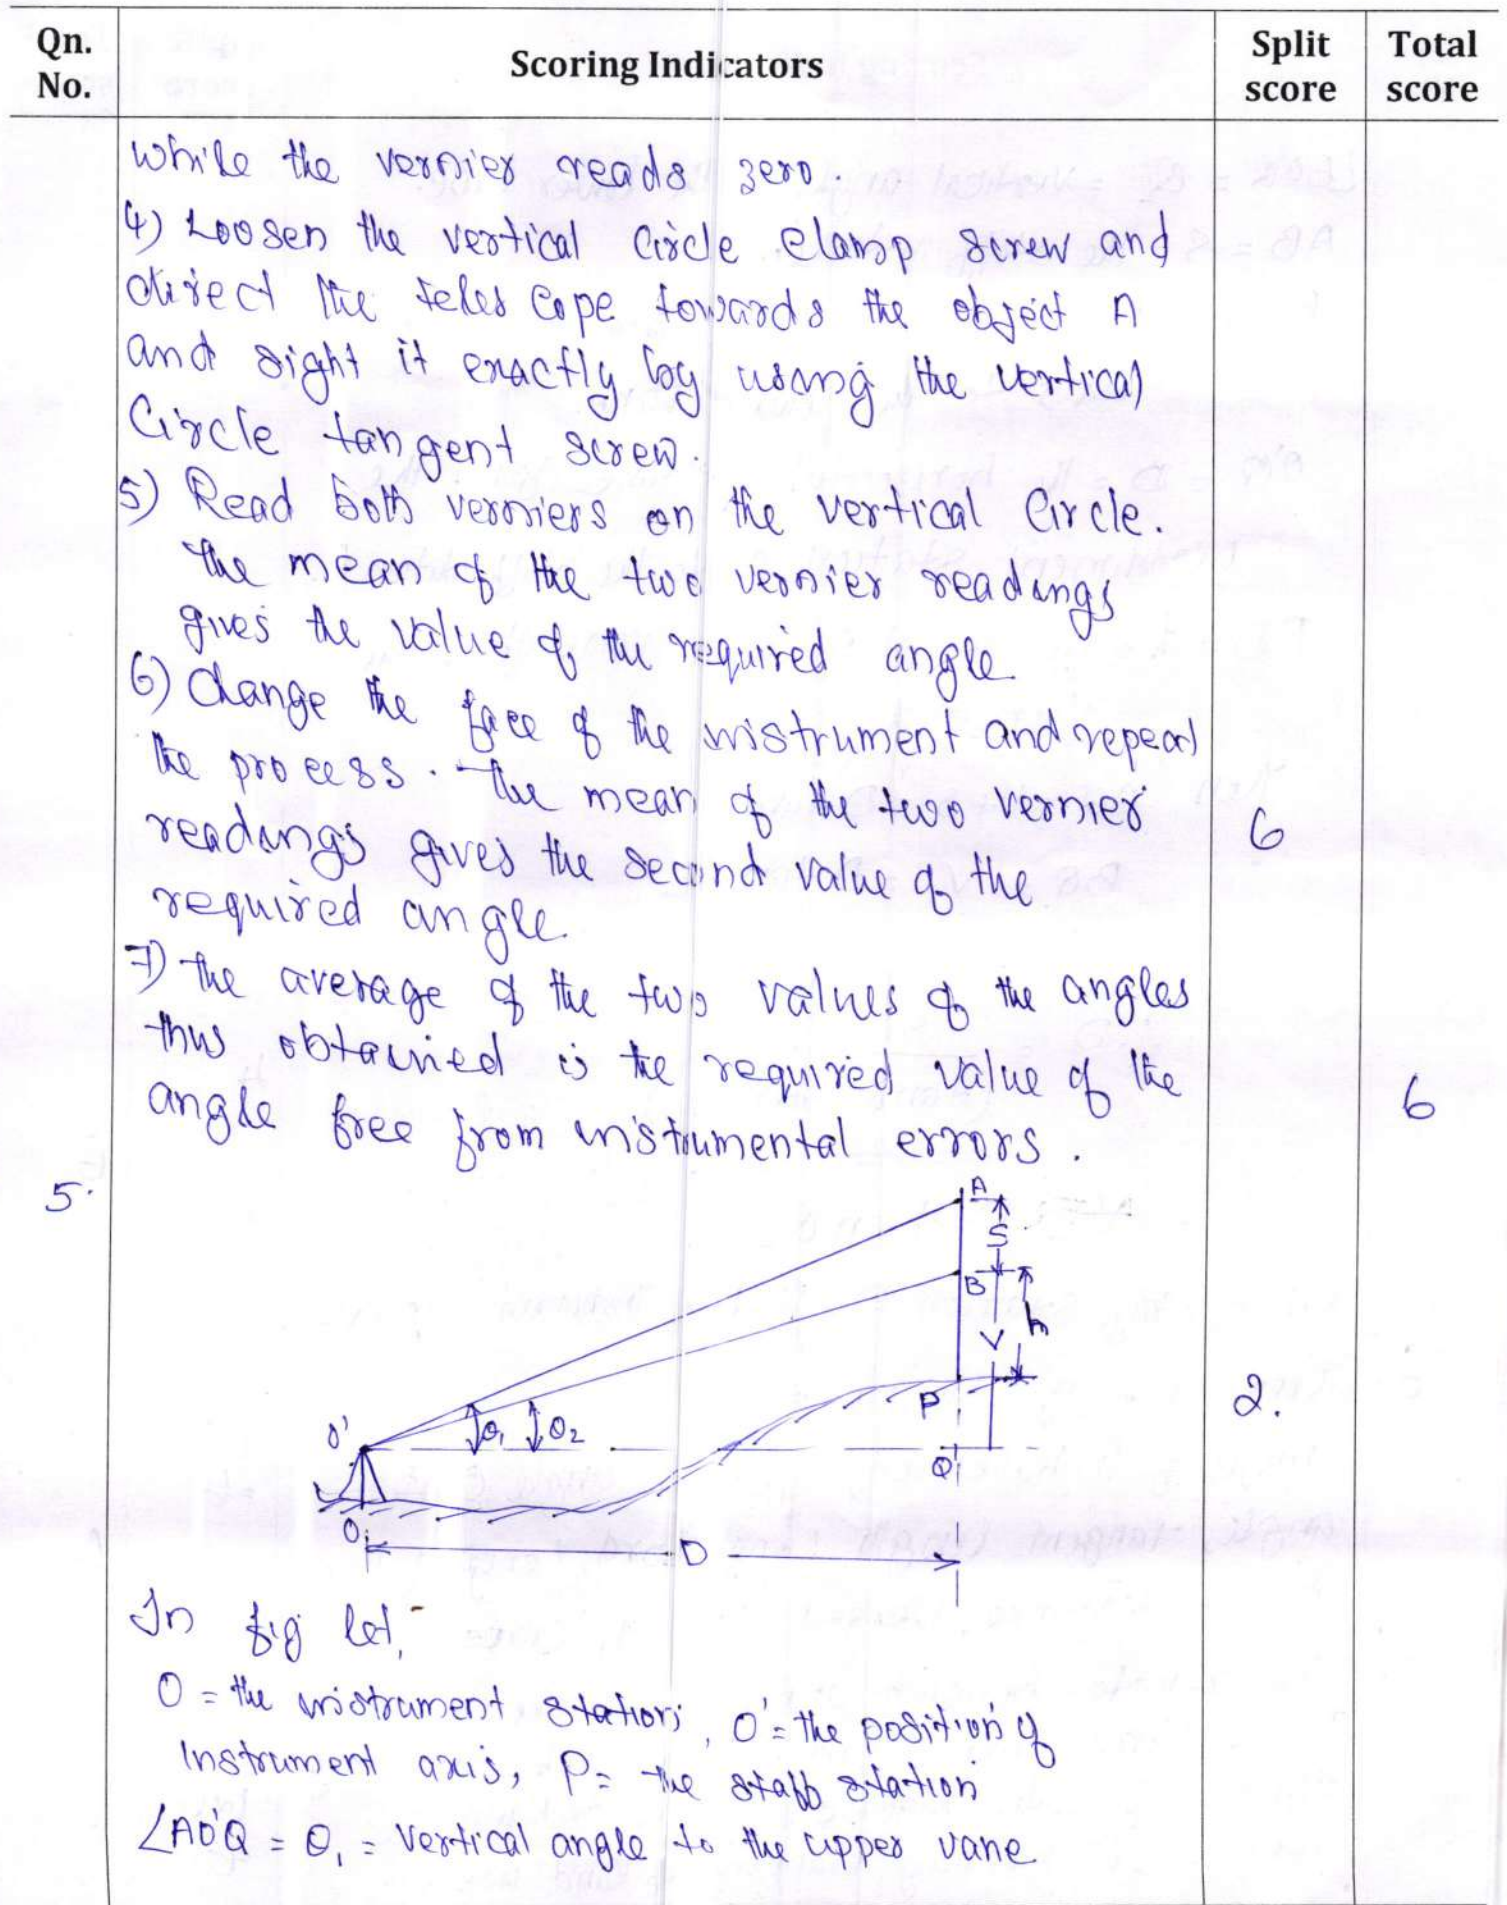 Qn. No.
Scoring Indicators
Split score
Total score
while the vernier reads zero.
4) Loosen the vertical circle clamp screw and
direct the telescope towards the object A
and sight it exactly by using the vertical
Circle tangent screw.
5) Read both verniers on the vertical Circle.
The mean of the two vernier readings
gives the value of the required angle
6) Change the face of the instrument and repeat
the process. The mean of the two vernier
readings gives the second value of the
6
required angle.
7) The average of the two values of the angles
thus obtained is the required value of the
angle free from instrumental errors.
6
5.
A
S
B
h
V
P
2.
O'
θ1
θ2
Q
O
D
In fig let,
O = the instrument station, O' = the position of
Instrument axis, P = the staff station
∠AO'Q = θ1 = Vertical angle to the upper vane